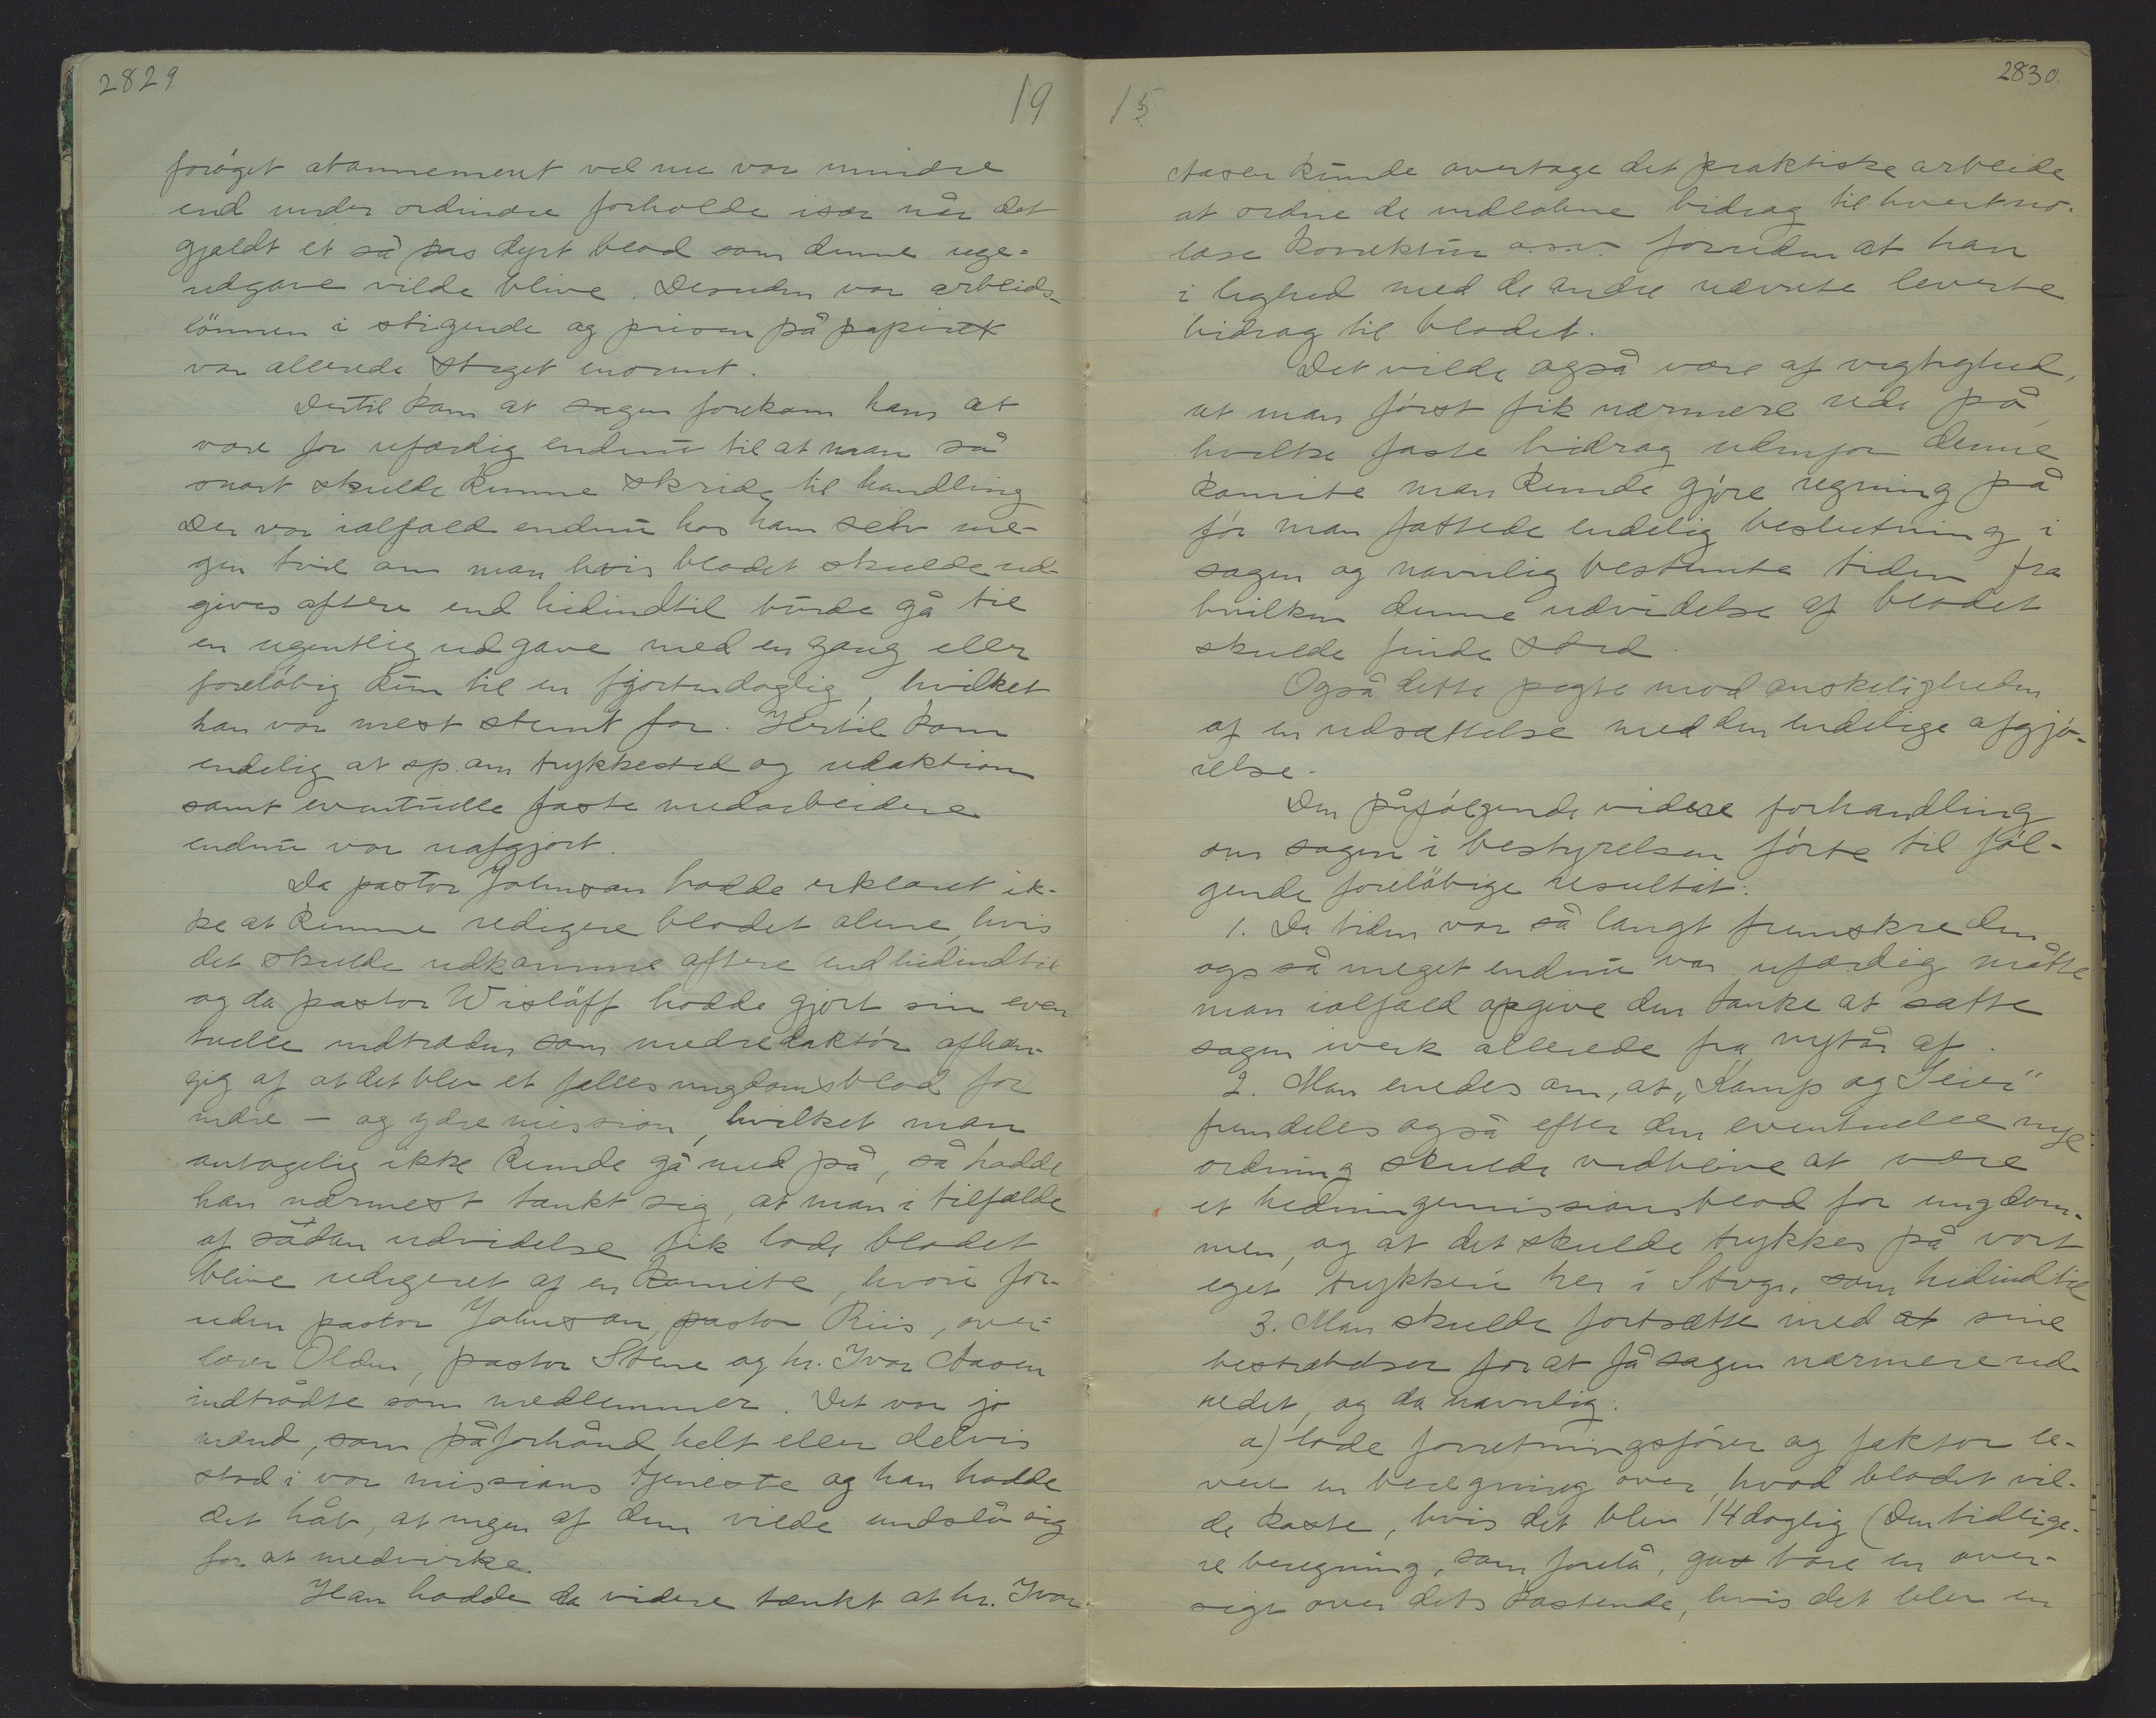 2829
19
forøget abonnement vel nu var mindre
end under ordinære forholde især når det
gjaldt et så pas dyrt blad som denne uge=
udgave vilde blive. Desuden var arbeids-
lönnen i stigende og prisen på papiret
var allerede steget enormt.
Dertil kom at sagen forekom ham at
være for ufærdig endnu til at man så
snart skulde kunne skride til handling
Der var ialfald endnu hos ham selv me-
gen tvil om man hvis bladet skulde ud-
gives oftere end hidindtil burde gå til
en ugentlig udgave med en gang eller
foreløbig kun til en fjortendaglig, hvilket
han var mest stemt for. Hertil kom
endelig at sp. om trykkested og redaktion
samt eventuelle faste medarbeidere
endnu var uafgjort.
Da pastor Johnson hadde erklæret ik-
ke at kunne redigere bladet alene, hvis
det skulde udkomme oftere end hidindtil
og da pastor Wisløff hadde gjort sin even
tuelle indtræden som medredaktør afhæn-
gig af at det blev et fælles ungdomsblad for
indre - og ydre mission, hvilket man
antagelig ikke kunde gå med på, så hadde
han nærmest tænkt sig, at man i tilfælde
af sådan udvidelse fik lade bladet
blive redigeret af en komite, hvori for-
uden pastor Johnson, pastor Riis, over=
lærer Olden, pastor Stene og hr. Ivar Aasen
indtrådte som medlemmer. Det var jo
mænd, som påforhånd helt eller delvis
stod i vor missions tjeneste og han hadde
det håb, at ingen af dem vilde undslå sig
for at medvirke.
Han hadde da videre tænkt at hr. Ivar
15
2830
Aasen kunde overtage det praktiske arbeide
at ordne de indløbne bidrag til hvert no.
læse korrektur o.s.v. foruden at han
i lighed med de andre nævnte leverte
bidrag til bladet.
Det vilde også være af vigtighed,
at man først fik nærmere rede på,
hvilke faste bidrag udenfor denne
komite man kunde gjøre regning på
før man fattede endelig beslutning i
sagen og navnlig bestemte tiden fra
hvilken denne udvidelse af bladet
skulde finde sted.
Også dette pegte mod ønskeligheden
af en udsættelse med den endelige afgjø-
relse.
Den påfølgende videre forhandling
om sagen i bestyrelsen førte til føl-
gende foreløbige resultat:
1. Da tiden var så langt fremskreden
ogs så meget endnu var ufærdig måtte
man ialfald opgive den tanke at sætte
sagen iverk allerede fra nytår af.
2. Man enedes om, at „Kamp og Seier"
fremdeles også efter den eventuelle nye
ordning skulde vedblive at være
et hedningemissionsblad for ungdom-
men, og at det skulde trykkes på vort
eget trykkeri her i Stvgr. som hidindtil
3. Man skulde fortsætte med at sine
bestræbelser for at få sagen nærmere ud-
redet, og da navnlig:
a) lade forretningsfører og faktor le-
vere en beregning over, hvad bladet vil-
de koste, hvis det blev 14 daglig (Den tidlige-
re beregning, som forelå, gav bare en over-
sigt over dets kostende, hvis det blev en